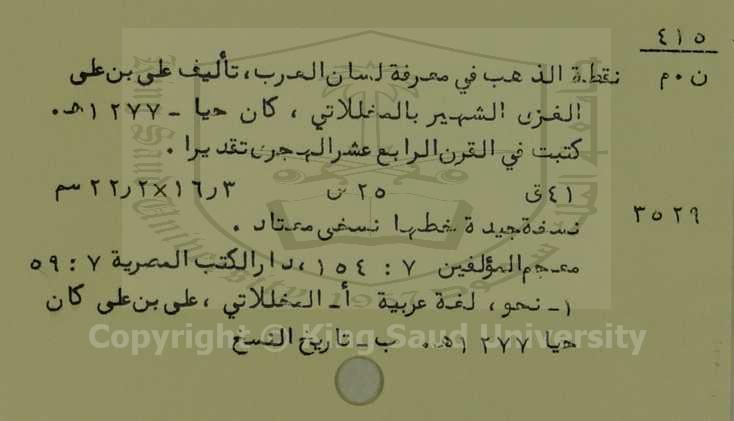 ٤١٥
ن٠م نقطة الذهب في معرفة لسان العرب، تأليف على بن على
الغزى الشهير بالمخللاتي ، كان حيا - ١٢٧٧هـ.
كتبت في القرن الرابع عشر الهجرى تقديرا .
٤١ق ٢٥ س ١٦٫٣×٢٢٫٢ سم
٣٥٢٩ نسخة جيدة خطها نسخى معتاد .
معجم المؤلفين ٧ : ١٥٤، دار الكتب المصرية ٧ : ٥٩
١- نحو ، لغة عربية أ- المخللاتي ، على بن على كان
حيا ١٢٧٧هـ. ب - تاريخ النسخ
Copyright © King Saud University